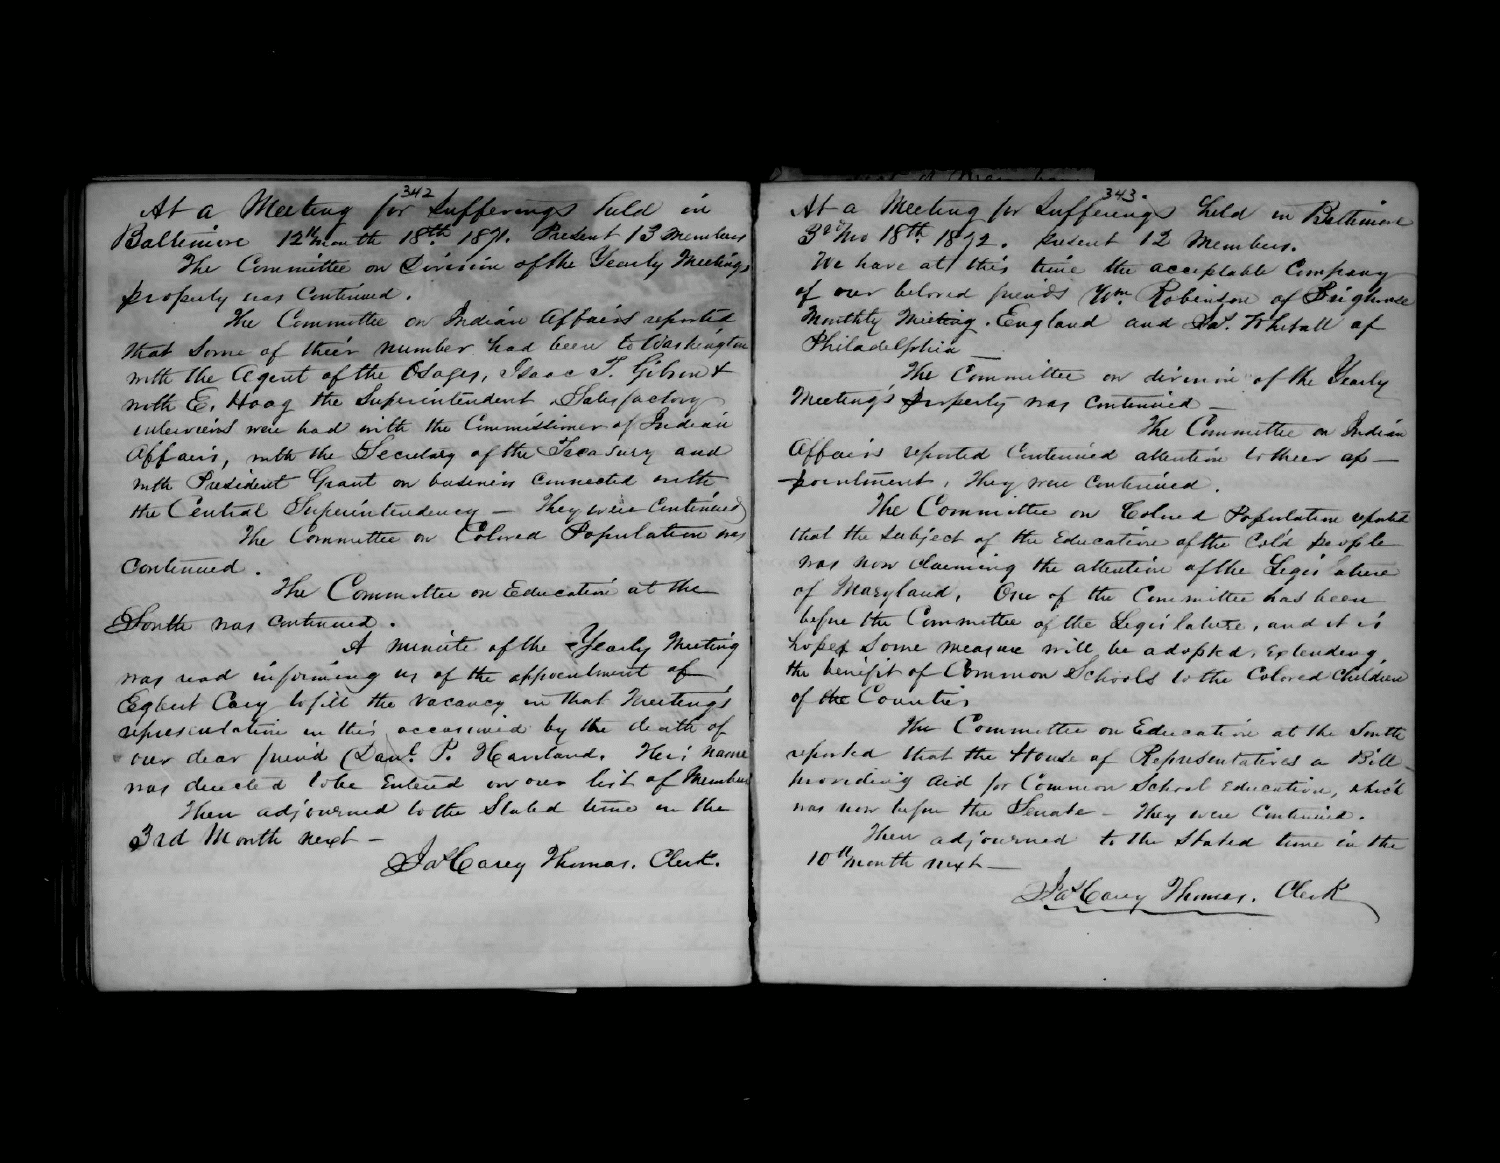 342
At a Meeting for Sufferings held in
Baltimore 12th month 18th 1871. Present 13 Members
The Committee on Division of the Yearly Meetings
property was continued.
The Committee on Indian Affairs reported
that some of their number had been to Washington
with the Agent of the Osages, Isaac T. Gibson &
with E. Hoag the Superintendent. Satisfactory
interviews were had with the Commissioner of Indian
Affairs, with the Secretary of the Treasury and
with President Grant on business connected with
the Central Superintendency — They were continued
The Committee on Colored Population was
continued.
The Committee on Education at the
South was continued.
A minute of the Yearly Meeting
was read informing us of the appointment of
Egbert Cary to fill the vacancy in that Meeting's
representation in this occasioned by the death of
our dear friend Danl. P. Haviland. His name
was directed to be Entered on our list of Members
Then adjourned to the Stated time in the
3rd Month next —
Jas Carey Thomas, Clerk.
343.
At a Meeting for Sufferings held in Baltimore
3rd Mo 18th 1872. present 12 Members.
We have at this time the acceptable Company
of our beloved friends Wm. Robinson of Brighouse
Monthly Meeting, England and Jas. Whitall of
Philadelphia —
The Committee on division of the Yearly
Meeting's property was continued —
The Committee on Indian
Affairs reported Continued attention to their ap-
-pointment, They were continued.
The Committee on Colored Population reported
that the subject of the Education of the Cold people
was now claiming the attention of the Legislature
of Maryland, One of the Committee has been
before the Committee of the Legislature, and it is
hoped some measure will be adopted, Extending
the benefit of Common Schools to the Colored Children
of the Counties
The Committee on Education at the South
reported that the House of Representatives a Bill
providing aid for Common School Education, which
was now before the Senate — They were continued.
Then adjourned to the Stated time in the
10th month next —
Jas Carey Thomas, Clerk